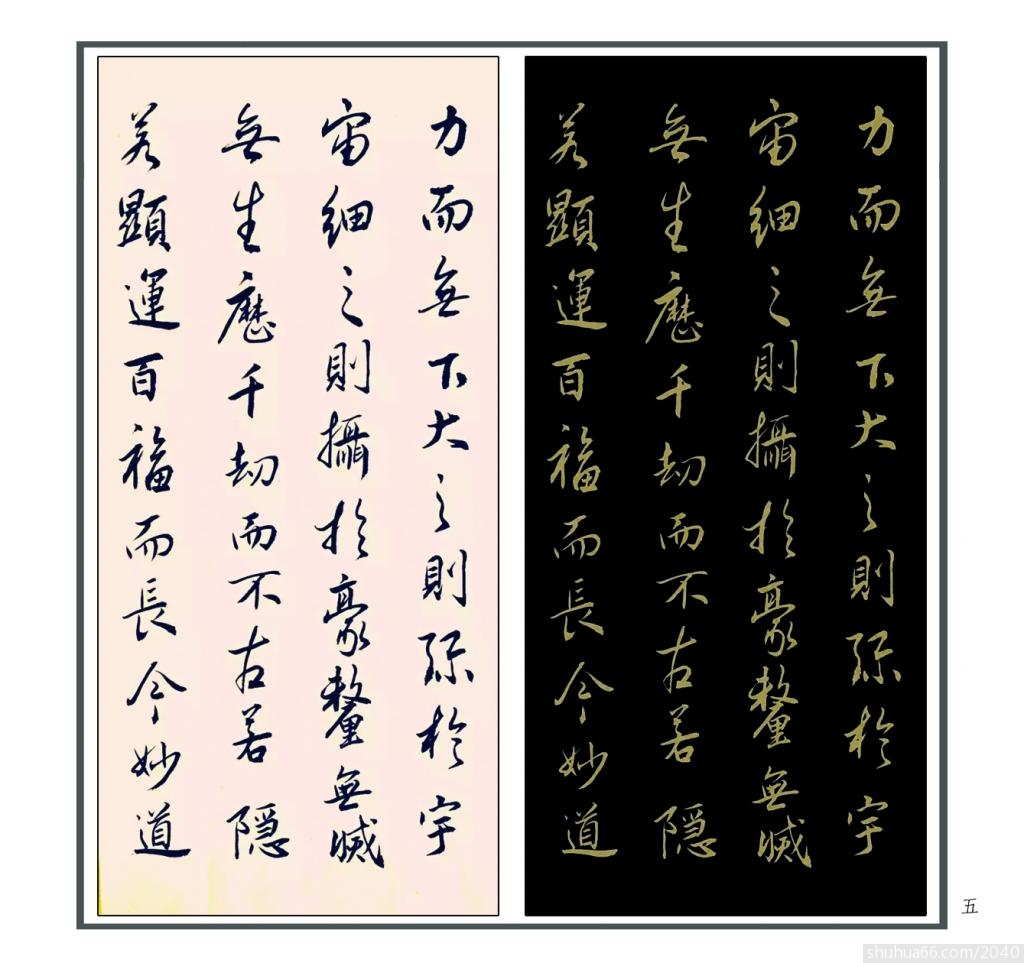 力而無下大之則彌於宇
宙細之則攝於豪釐無滅
無生歷千劫而不古若隱
若顯運百福而長今妙道
力而無下大之則彌於宇
宙細之則攝於豪釐無滅
無生歷千劫而不古若隱
若顯運百福而長今妙道
五
shuhua66.com/2040